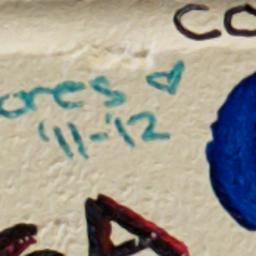 co
ores ♡
'11-'12